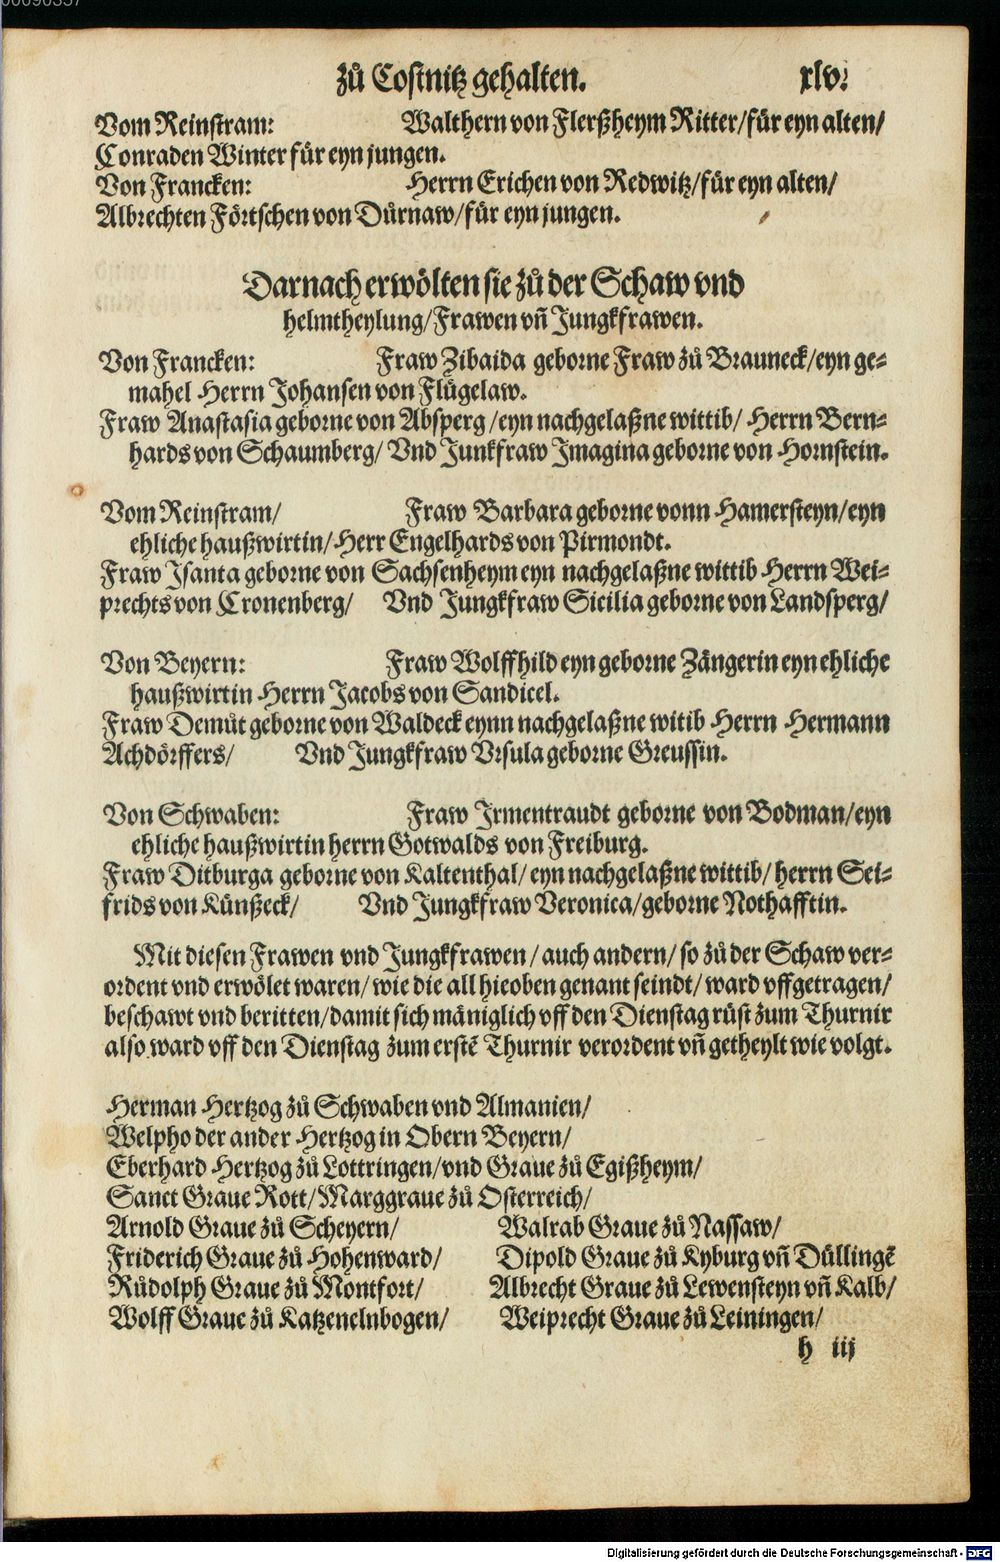 00090357
zů Costnitz gehalten. xlv.
Vom Reinstram: Walthern von Flerßheym Ritter/für eyn alten/
Conraden Winter für eyn jungen.
Von Francken: Herrn Erichen von Redwitz/für eyn alten/
Albrechten Förtschen von Dürnaw/für eyn jungen.
Darnach erwölten sie zů der Schaw vnd
helmtheylung/Frawen vñ Jungkfrawen.
Von Francken: Fraw Zibaida geborne Fraw zů Brauneck/eyn ge-
mahel Herrn Johansen von Flügelaw.
Fraw Anastasia geborne von Absperg/eyn nachgelaßne wittib/Herrn Bern-
hards von Schaumberg/Vnd Junkfraw Imagina geborne von Hornstein.
Vom Reinstram/ Fraw Barbara geborne vonn Hamersteyn/eyn
ehliche haußwirtin/Herr Engelhards von Pirmondt.
Fraw Isanta geborne von Sachsenheym eyn nachgelaßne wittib Herrn Wei-
prechts von Cronenberg/ Vnd Jungkfraw Sicilia geborne von Landsperg/
Von Beyern: Fraw Wolffhild eyn geborne Zängerin eyn ehliche
haußwirtin Herrn Jacobs von Sandicel.
Fraw Demůt geborne von Waldeck eynn nachgelaßne witib Herrn Hermann
Achdörffers/ Vnd Jungkfraw Vrsula geborne Greussin.
Von Schwaben: Fraw Irmentraudt geborne von Bodman/eyn
ehliche haußwirtin herrn Gotwalds von Freiburg.
Fraw Ditburga geborne von Kaltenthal/eyn nachgelaßne wittib/herrn Sei-
frids von Künßeck/ Vnd Jungkfraw Veronica/geborne Nothafftin.
Mit diesen Frawen vnd Jungkfrawen/auch andern/so zů der Schaw ver-
ordent vnd erwölet waren/wie die all hieoben genant seindt/ward vffgetragen/
beschawt vnd beritten/damit sich mäniglich vff den Dienstag rüst zum Thurnir
also ward vff den Dienstag zum erstē Thurnir verordent vñ getheylt wie volgt.
Herman Hertzog zů Schwaben vnd Almanien/
Welpho der ander Hertzog in Obern Beyern/
Eberhard Hertzog zů Lottringen/vnd Graue zů Egißheym/
Sanct Graue Rott/Marggraue zů Osterreich/
Arnold Graue zů Scheyern/ Walrab Graue zů Nassaw/
Friderich Graue zů Hohenward/ Dipold Graue zů Kyburg vñ Düllingē
Růdolph Graue zů Montfort/ Albrecht Graue zů Lewensteyn vñ Kalb/
Wolff Graue zů Katzenelnbogen/ Weiprecht Graue zů Leiningen/
h iij
Digitalisierung gefördert durch die Deutsche Forschungsgemeinschaft - DFG